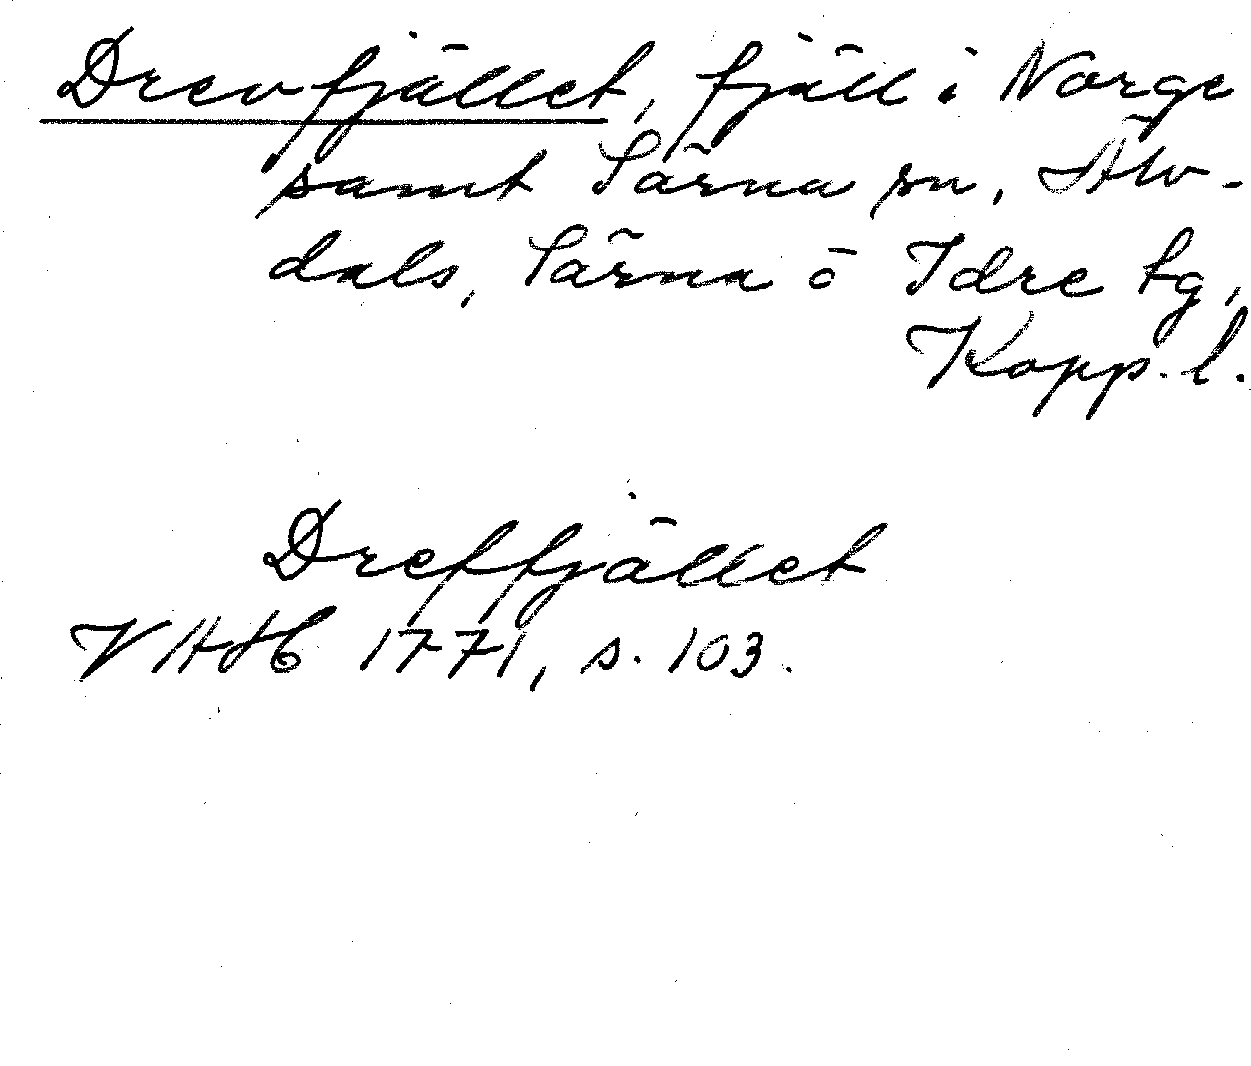 Drevfjället, fjäll i Norge
samt Särna sn, Älv-
dals, Särna o Idre tg,
Kopp. l.
Dreffjället
VAH 1771, s. 103.